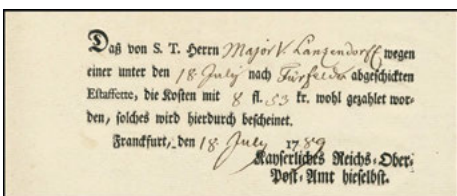 Daß von S. T. Herrn Major V. Langendorff wegen
einer unter den 18 July nach Fürfelden abgeschickten
Estaffette, die Kosten mit 8 fl. 53 kr. wohl gezahlet wor-
den, solches wird hierdurch bescheinet.
Franckfurt, den 18. July 1789
Kayserliches Reichs-Ober-
Post-Amt hieselbst.